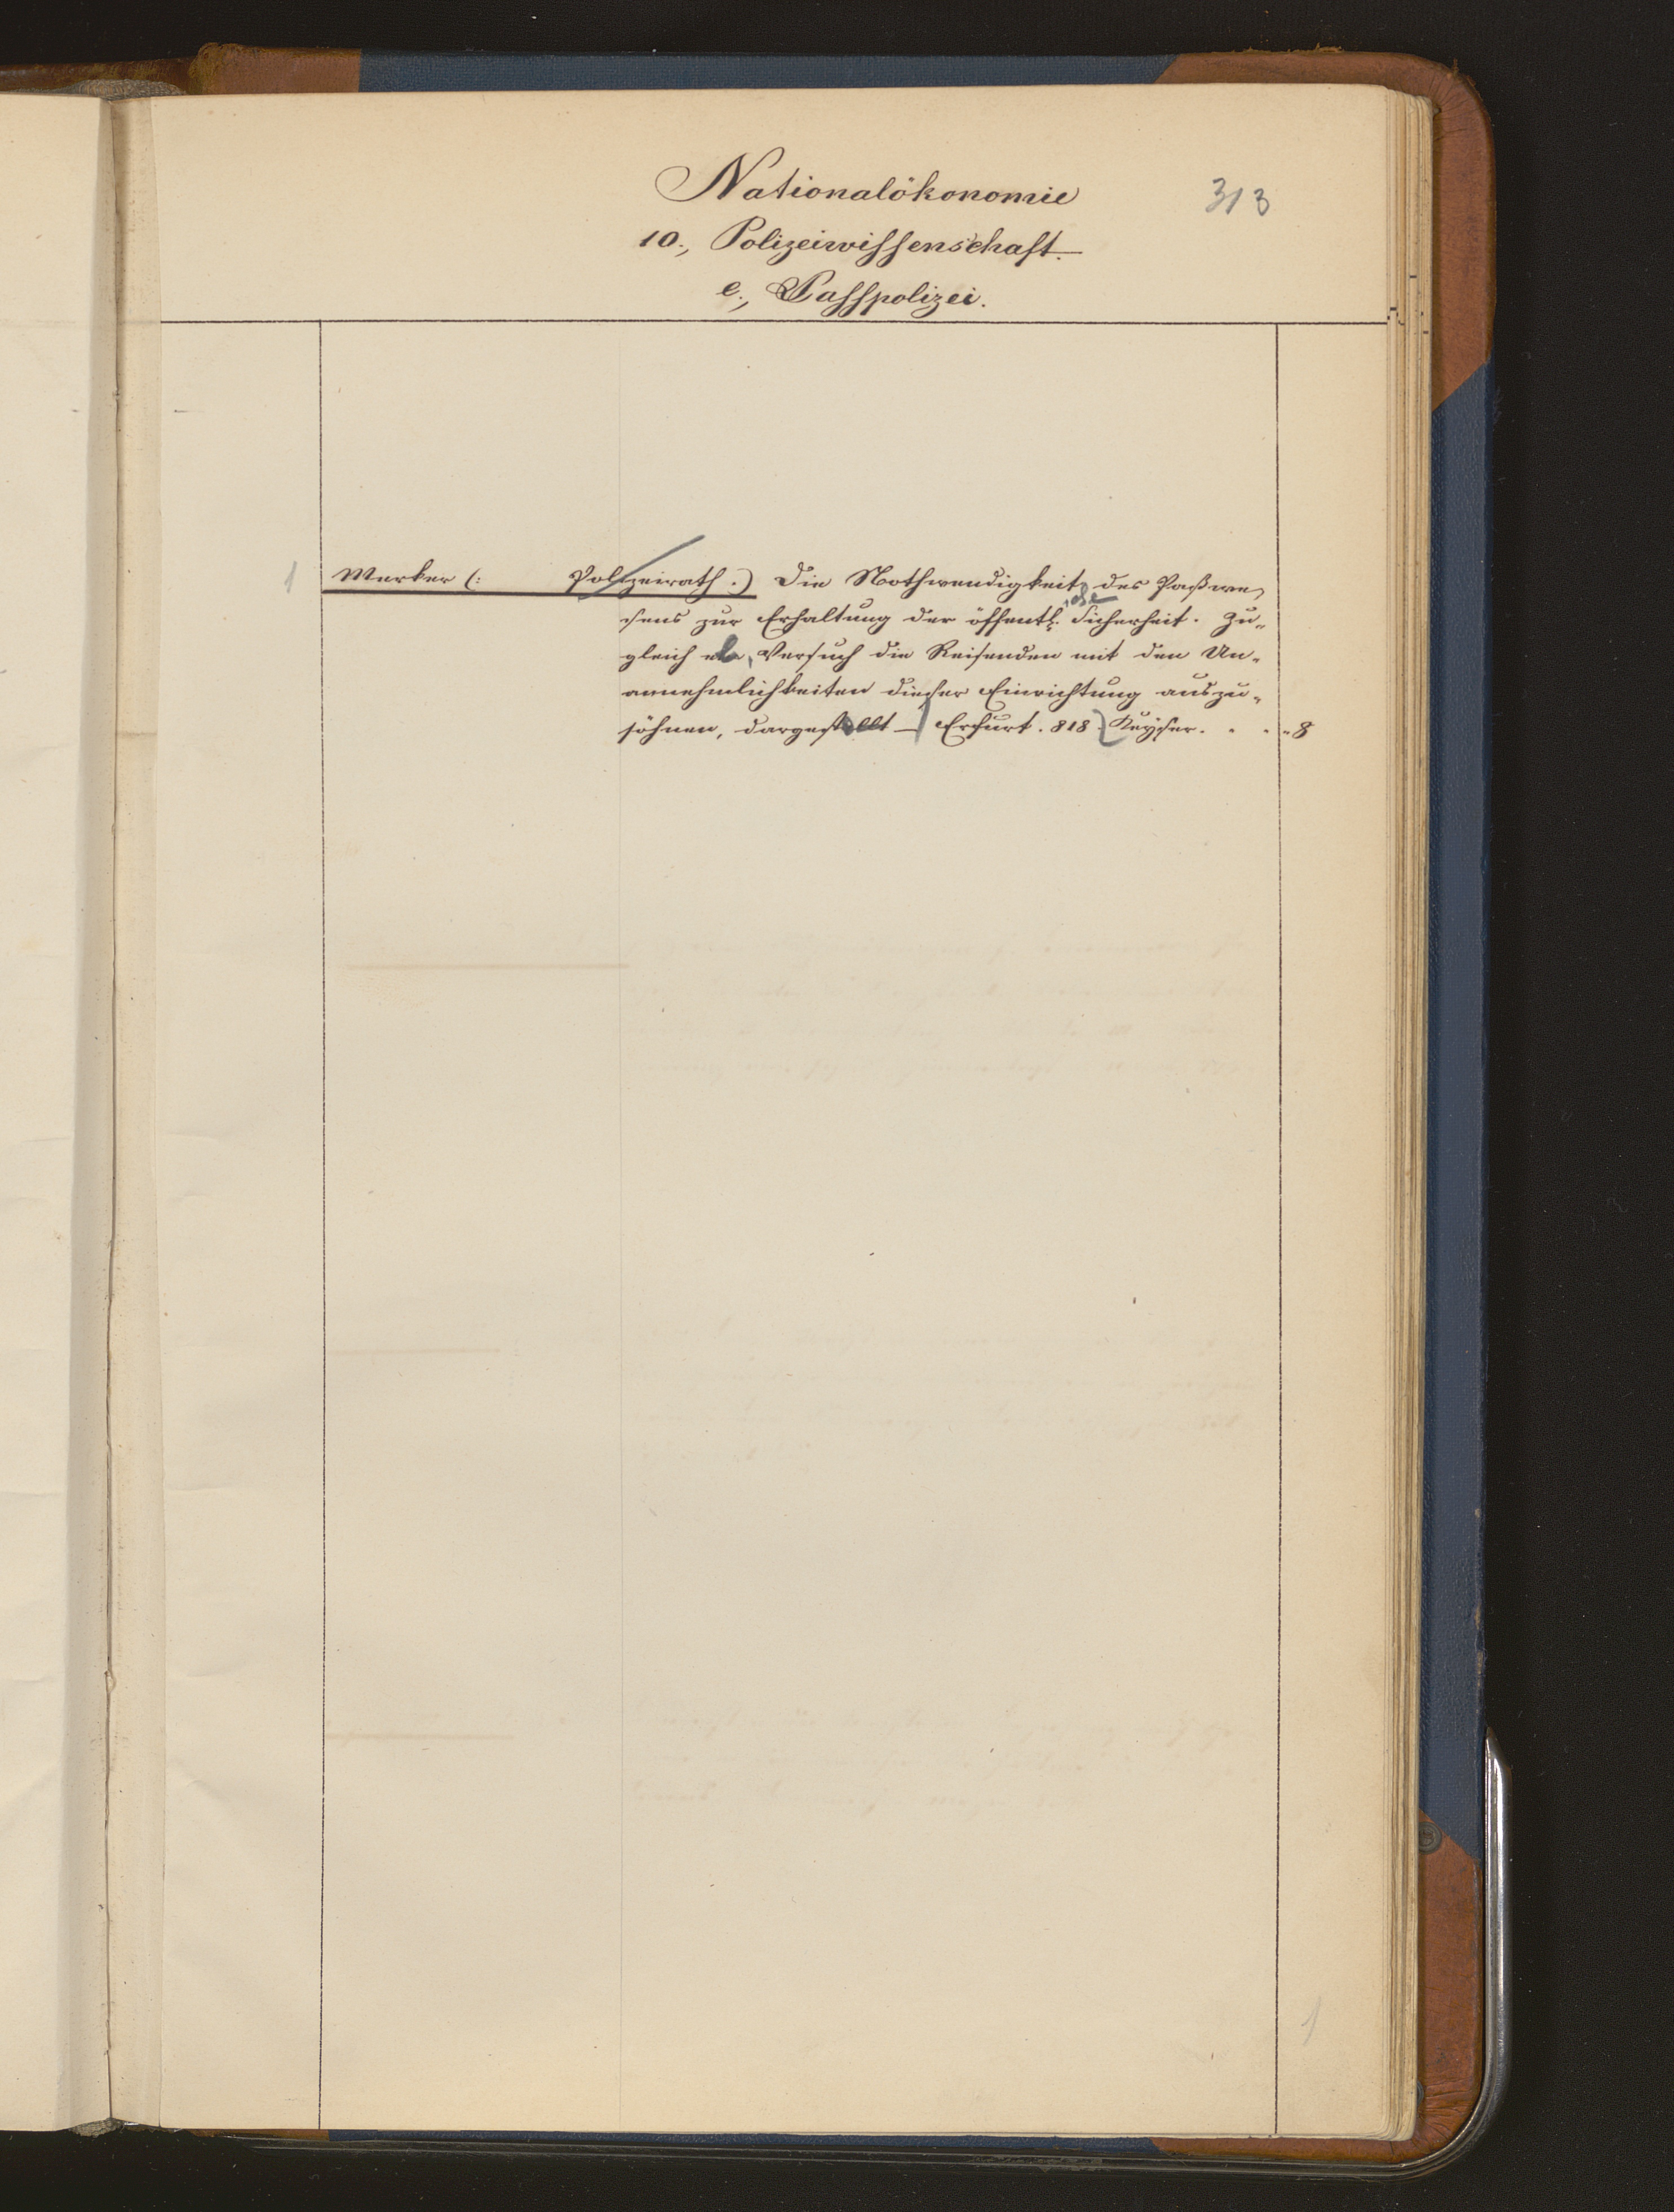 Nationalökonomie
313
10., Polizeiwissenschaft.
e., Passpolizei.
1 Merker (: Polizeirath.) Die Nothwendigkeit des Paßwe-
sens zur Erhaltung der öffentl. Sicherheit. Zu-
gleich als Versuch die Reisenden mit den Un-
annehmlichkeiten dieser Einrichtung auszu-
söhnen, dargestellt – Erfurt. 818. Keyser. . . . 8
1